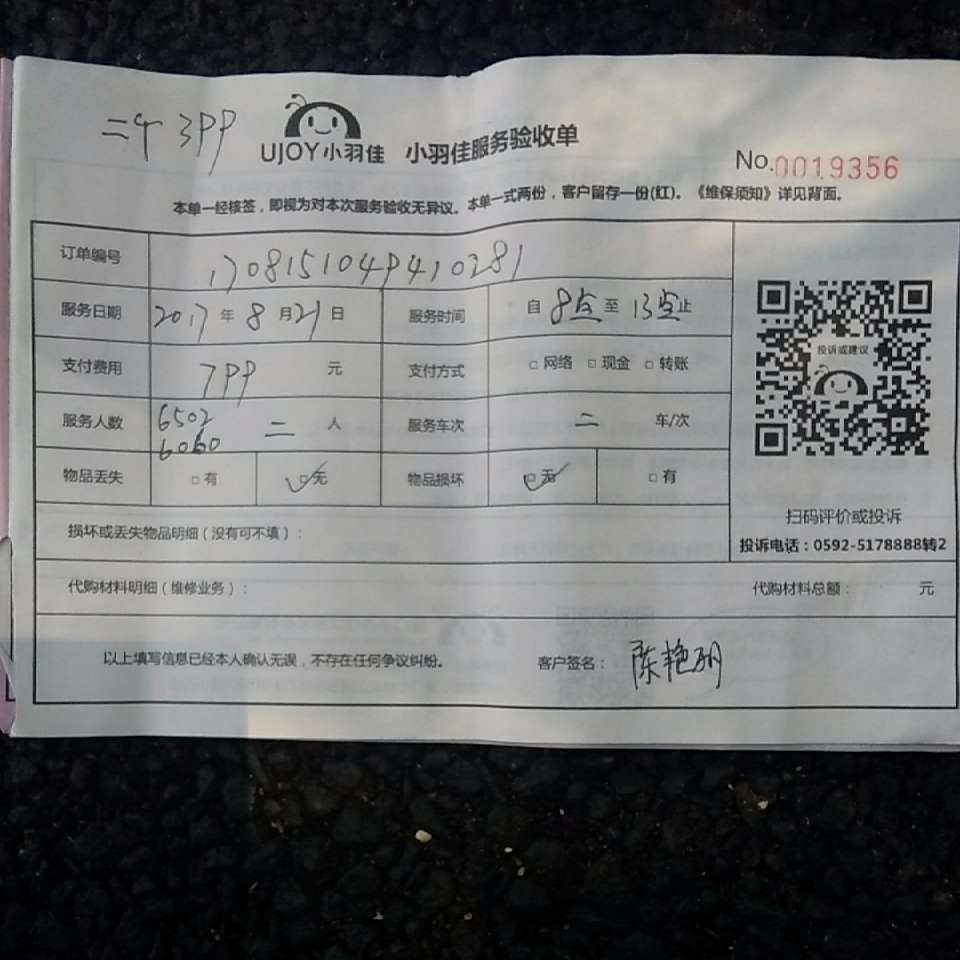 二午399
UJOY小羽佳 小羽佳服务验收单
No.0019356
本单一经核签，即视为对本次服务验收无异议。本单一式两份，客户留存一份(红)。《维保须知》详见背面。
订单编号 170815104949410281
服务日期 2017年8月21日 服务时间 自8点至13点止
支付费用 799元 支付方式 □网络 □现金 □转账
投诉或建议
服务人数 6502 6060 二人 服务车次 二 车/次
物品丢失 □有 □无 物品损坏 □无 □有
扫码评价或投诉
损坏或丢失物品明细（没有可不填）：
投诉电话：0592-5178888转2
代购材料明细（维修业务）： 代购材料总额： 元
以上填写信息已经本人确认无误，不存在任何争议纠纷。 客户签名：陈艳羽